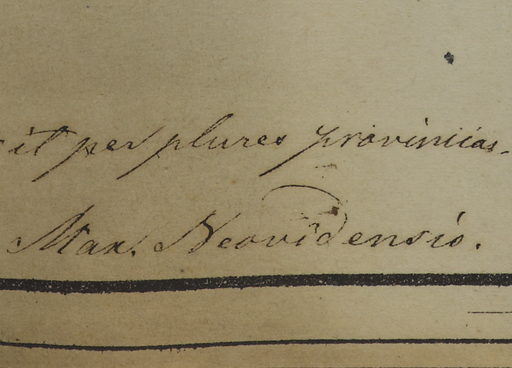 it per plures provincias
Max. Neovidensis.